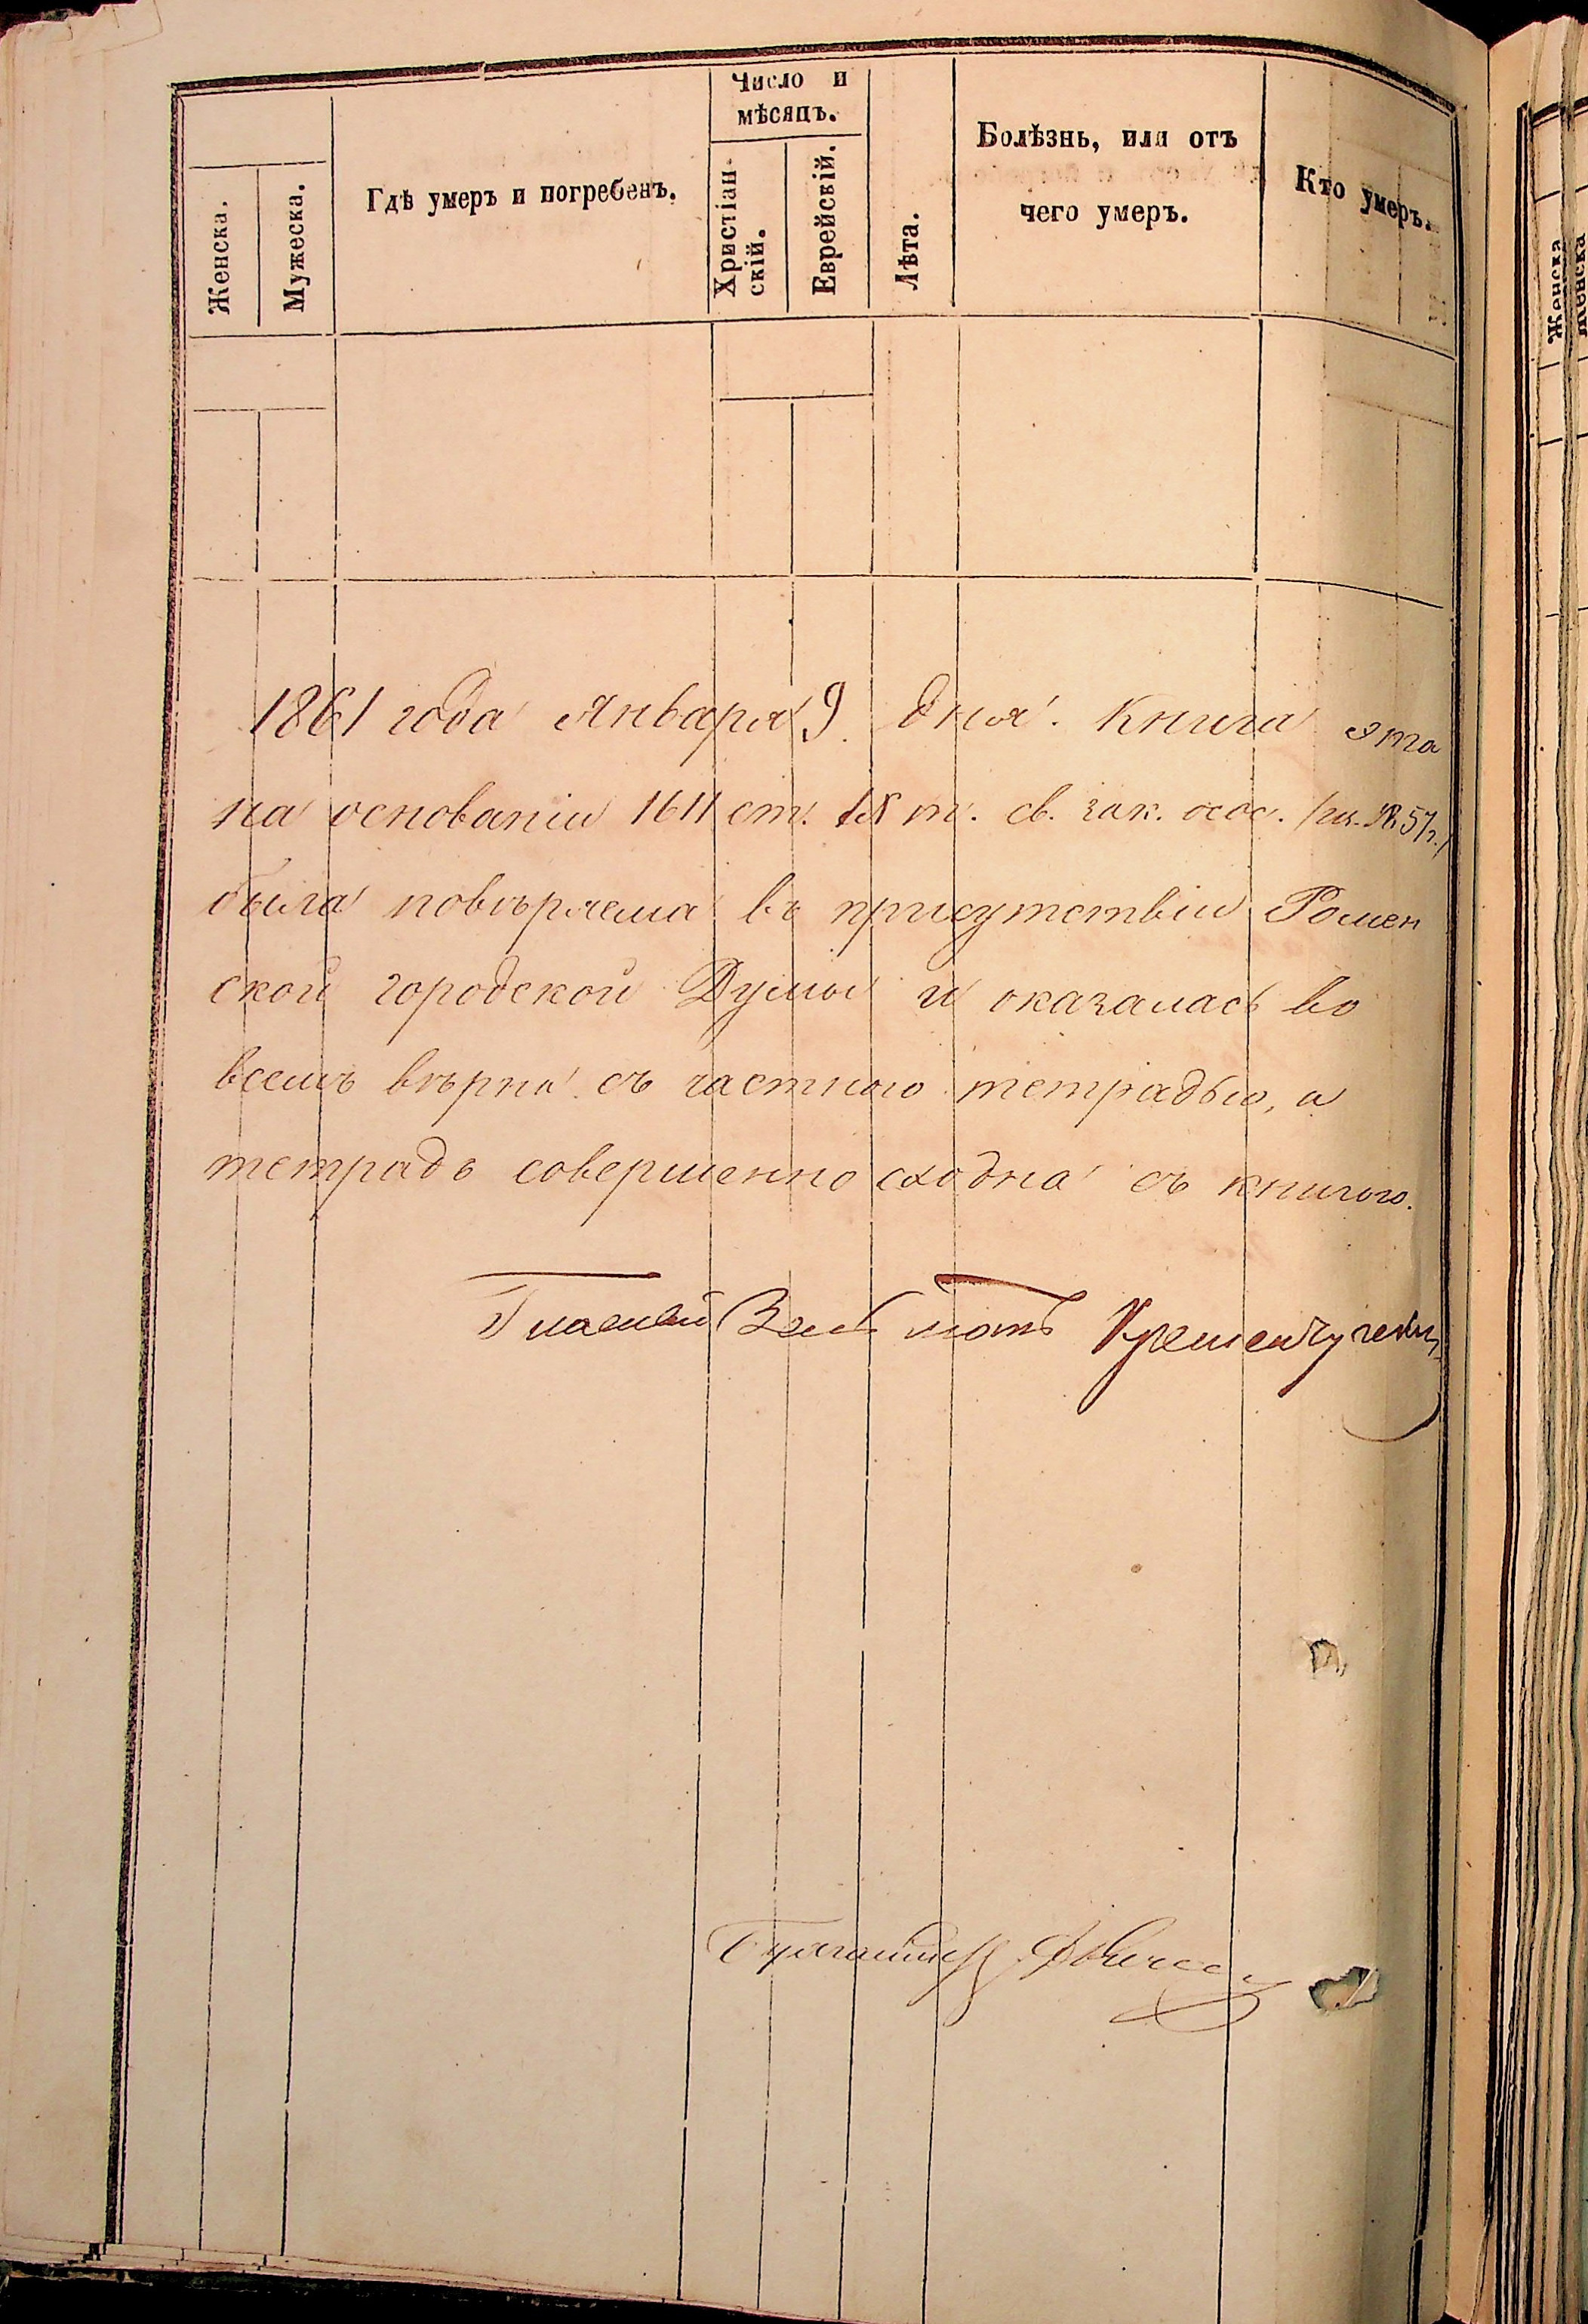 Женска.
Мужеска.
Гдѣ умеръ и погребенъ.
Число и
мѣсяцъ.
Христіан-
скій.
Еврейскій.
Лѣта.
Болѣзнь, или отъ
чего умеръ.
Кто умеръ.
1861 года Января 9 дня. Книга эта
на основаніи 1611 ст. IX т. св. зак. о сос.
была повѣряема въ присутствіи Ромен
ской городской Думы и оказалась во
всемъ вѣрна съ частною тетрадью, а
тетрадь совершенно сходна съ книгою.
Гласный
Женска